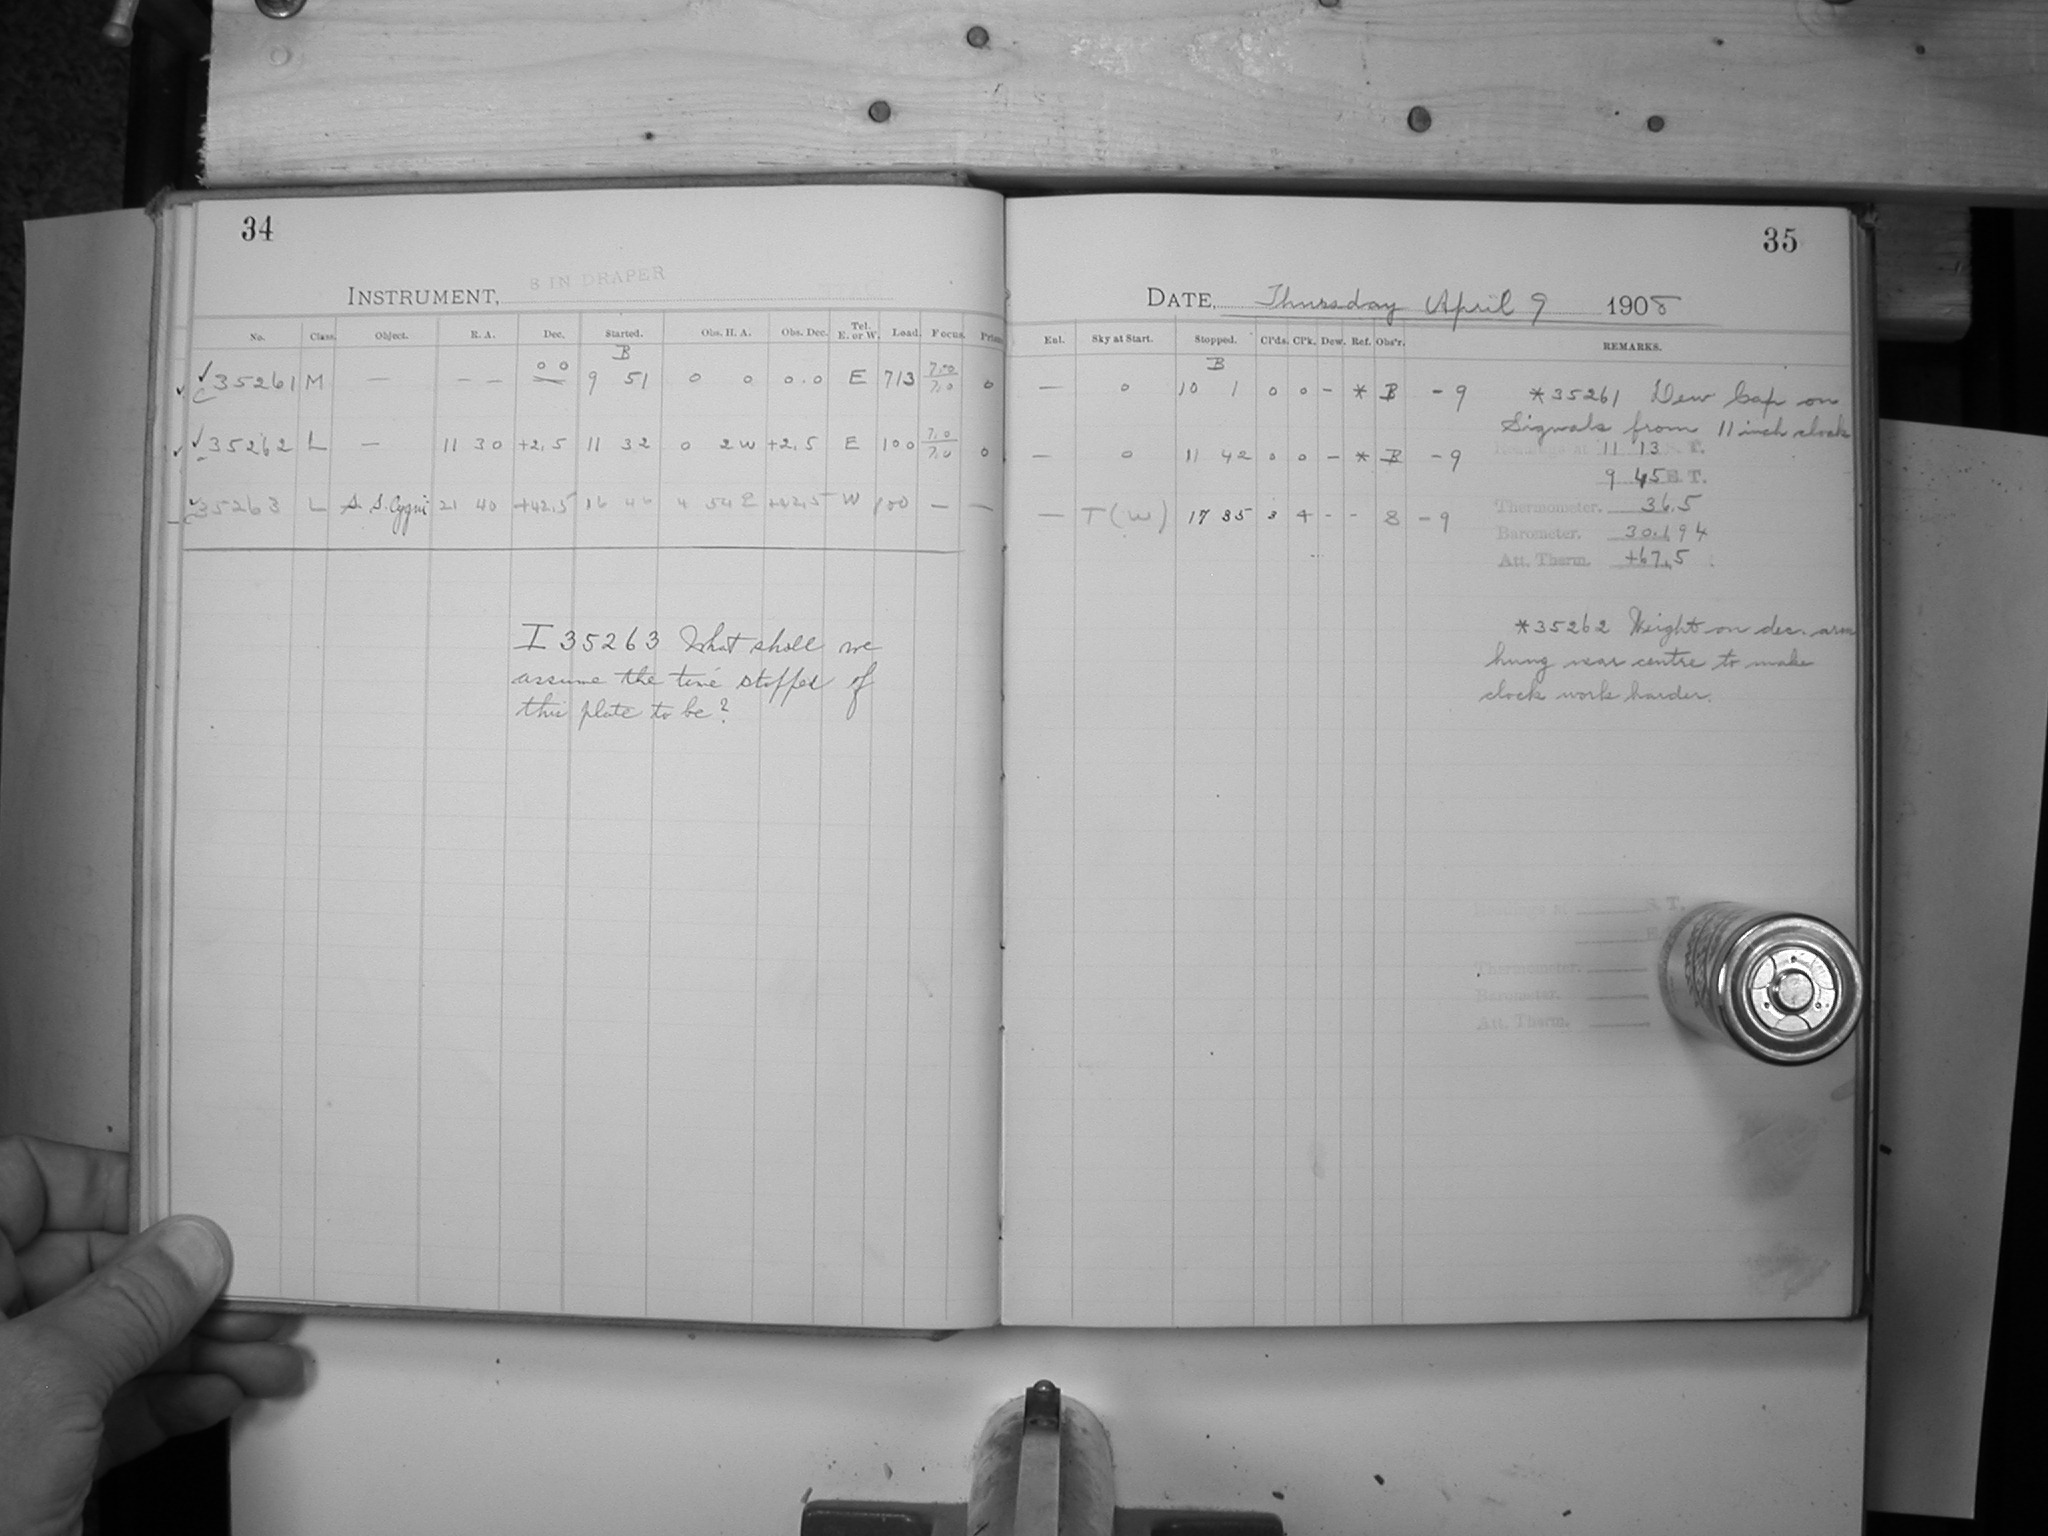 34
INSTRUMENT, 8 IN DRAPER
No. Class. Object. R. A. Dec. Started. Obs. H. A. Obs. Dec. Tel. E. or W. Load. Focus.
B
✓35261 M — — — 0 0 9 51 0 0 0.0 E 713 7.00 7.0 0
✓35262 L — 11 30 +2.5 11 32 0 2W +2.5 E 100 7.0 7.0 0
✓35263 L S. S. Cygni 21 40 +42.5 16 46 4 54 E +42.5 W 100 — —
I 35263 What shall we
assume the time stopped of
this plate to be?
35
DATE, Thursday April 9 1908
Enl. Sky at Start. Stopped. Cl'ds. Cl'k. Dew. Ref. Obs'r. REMARKS.
B
— 0 10 1 0 0 - * B - 9
— 0 11 42 0 0 - * B - 9
— T (W) 17 35 3 4 - - 8 - 9
*35261 Dew Cap on
Signals from 11 inch clock
Readings at 11 13 S. T.
9 45 E. T.
Thermometer. 36.5
Barometer. 30.194
Att. Therm. +67.5
*35262 Weight on dec. arm
hung near centre to make
clock work harder.
Readings at S. T.
E
Thermometer.
Barometer.
Att. Therm.